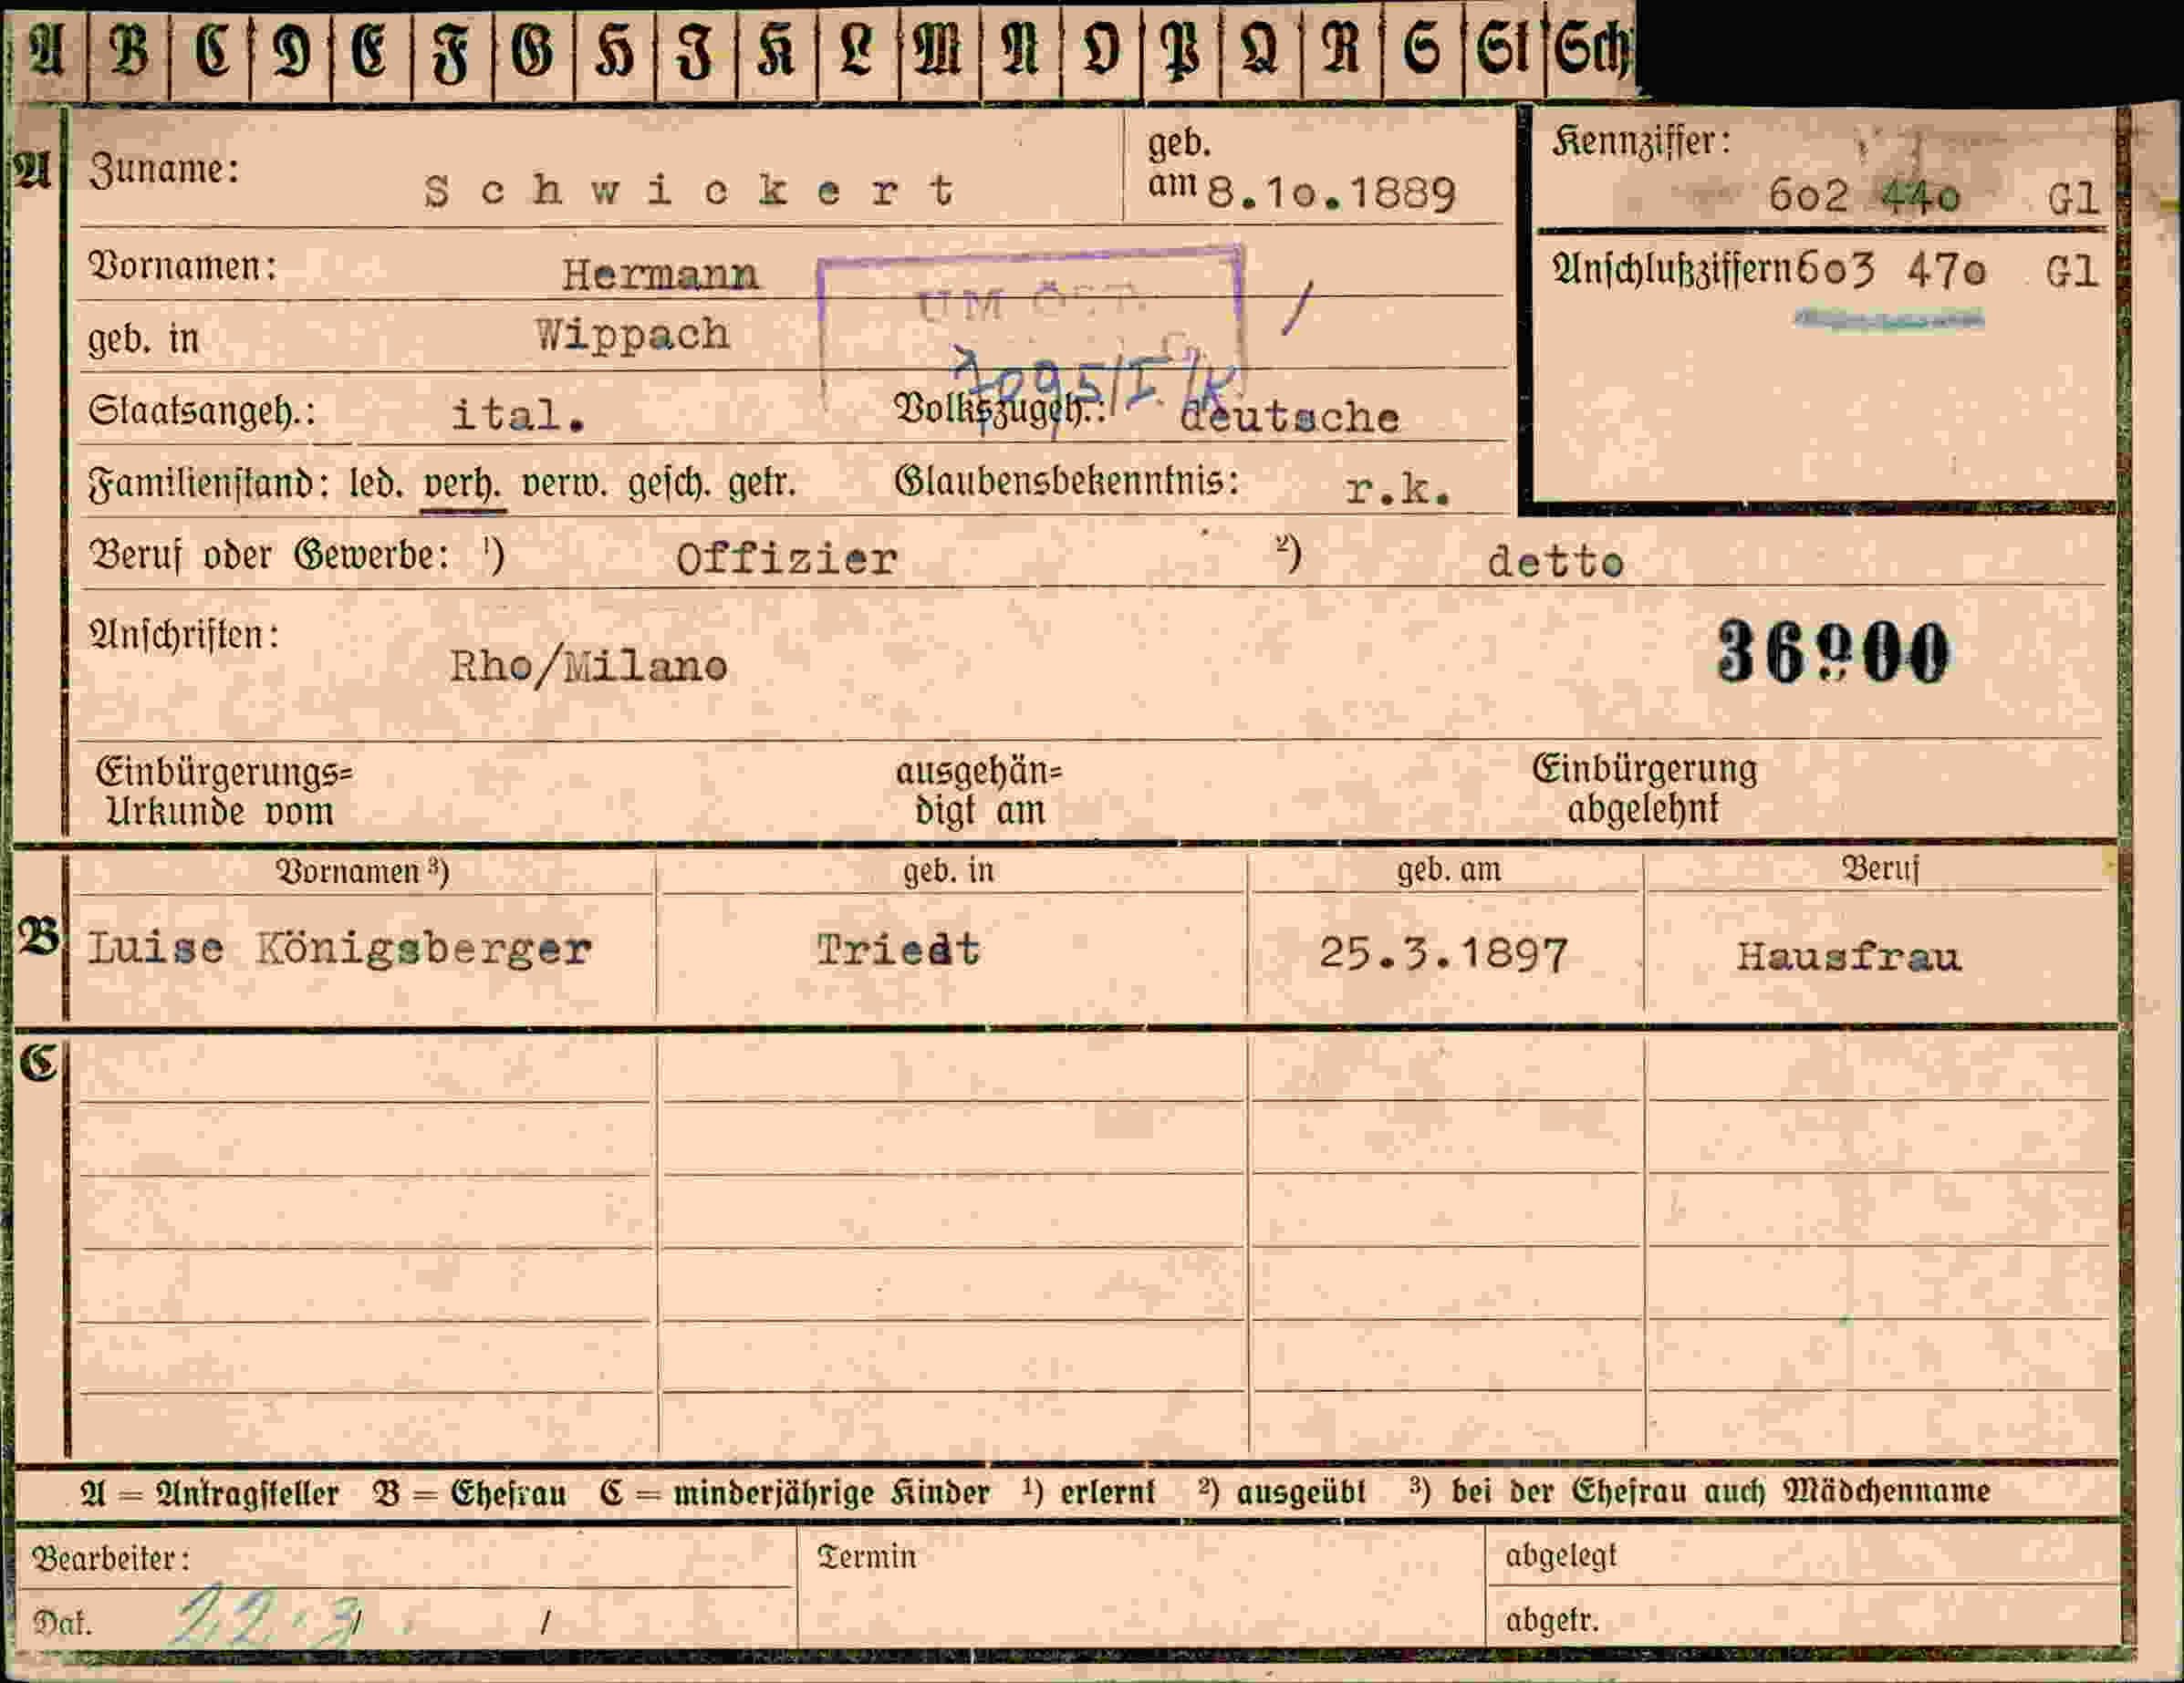 A B C D E F G H J K L M N O P Q R S St Sch
A Zuname: Schwickert geb. am 8.10.1889 Kennziffer: 602 440 Gl
Vornamen: Hermann Anschlußziffern 603 470 Gl
geb. in Wippach
7095/I/K
Staatsangeh.: ital. Volkszugeh.: deutsche
Familienstand: led. verh. verw. gesch. getr. Glaubensbekenntnis: r.k.
Beruf oder Gewerbe: ¹) Offizier ²) detto
Anschriften: Rho/Milano 36900
Einbürgerungs= ausgehän= Einbürgerung
Urkunde vom digt am abgelehnt
Vornamen ³) geb. in geb. am Beruf
B Luise Königsberger Triedt 25.3.1897 Hausfrau
C
A = Antragsteller B = Ehefrau C = minderjährige Kinder ¹) erlernt ²) ausgeübt ³) bei der Ehefrau auch Mädchenname
Bearbeiter: Termin abgelegt
Dat. 22.3. / / abgetr.